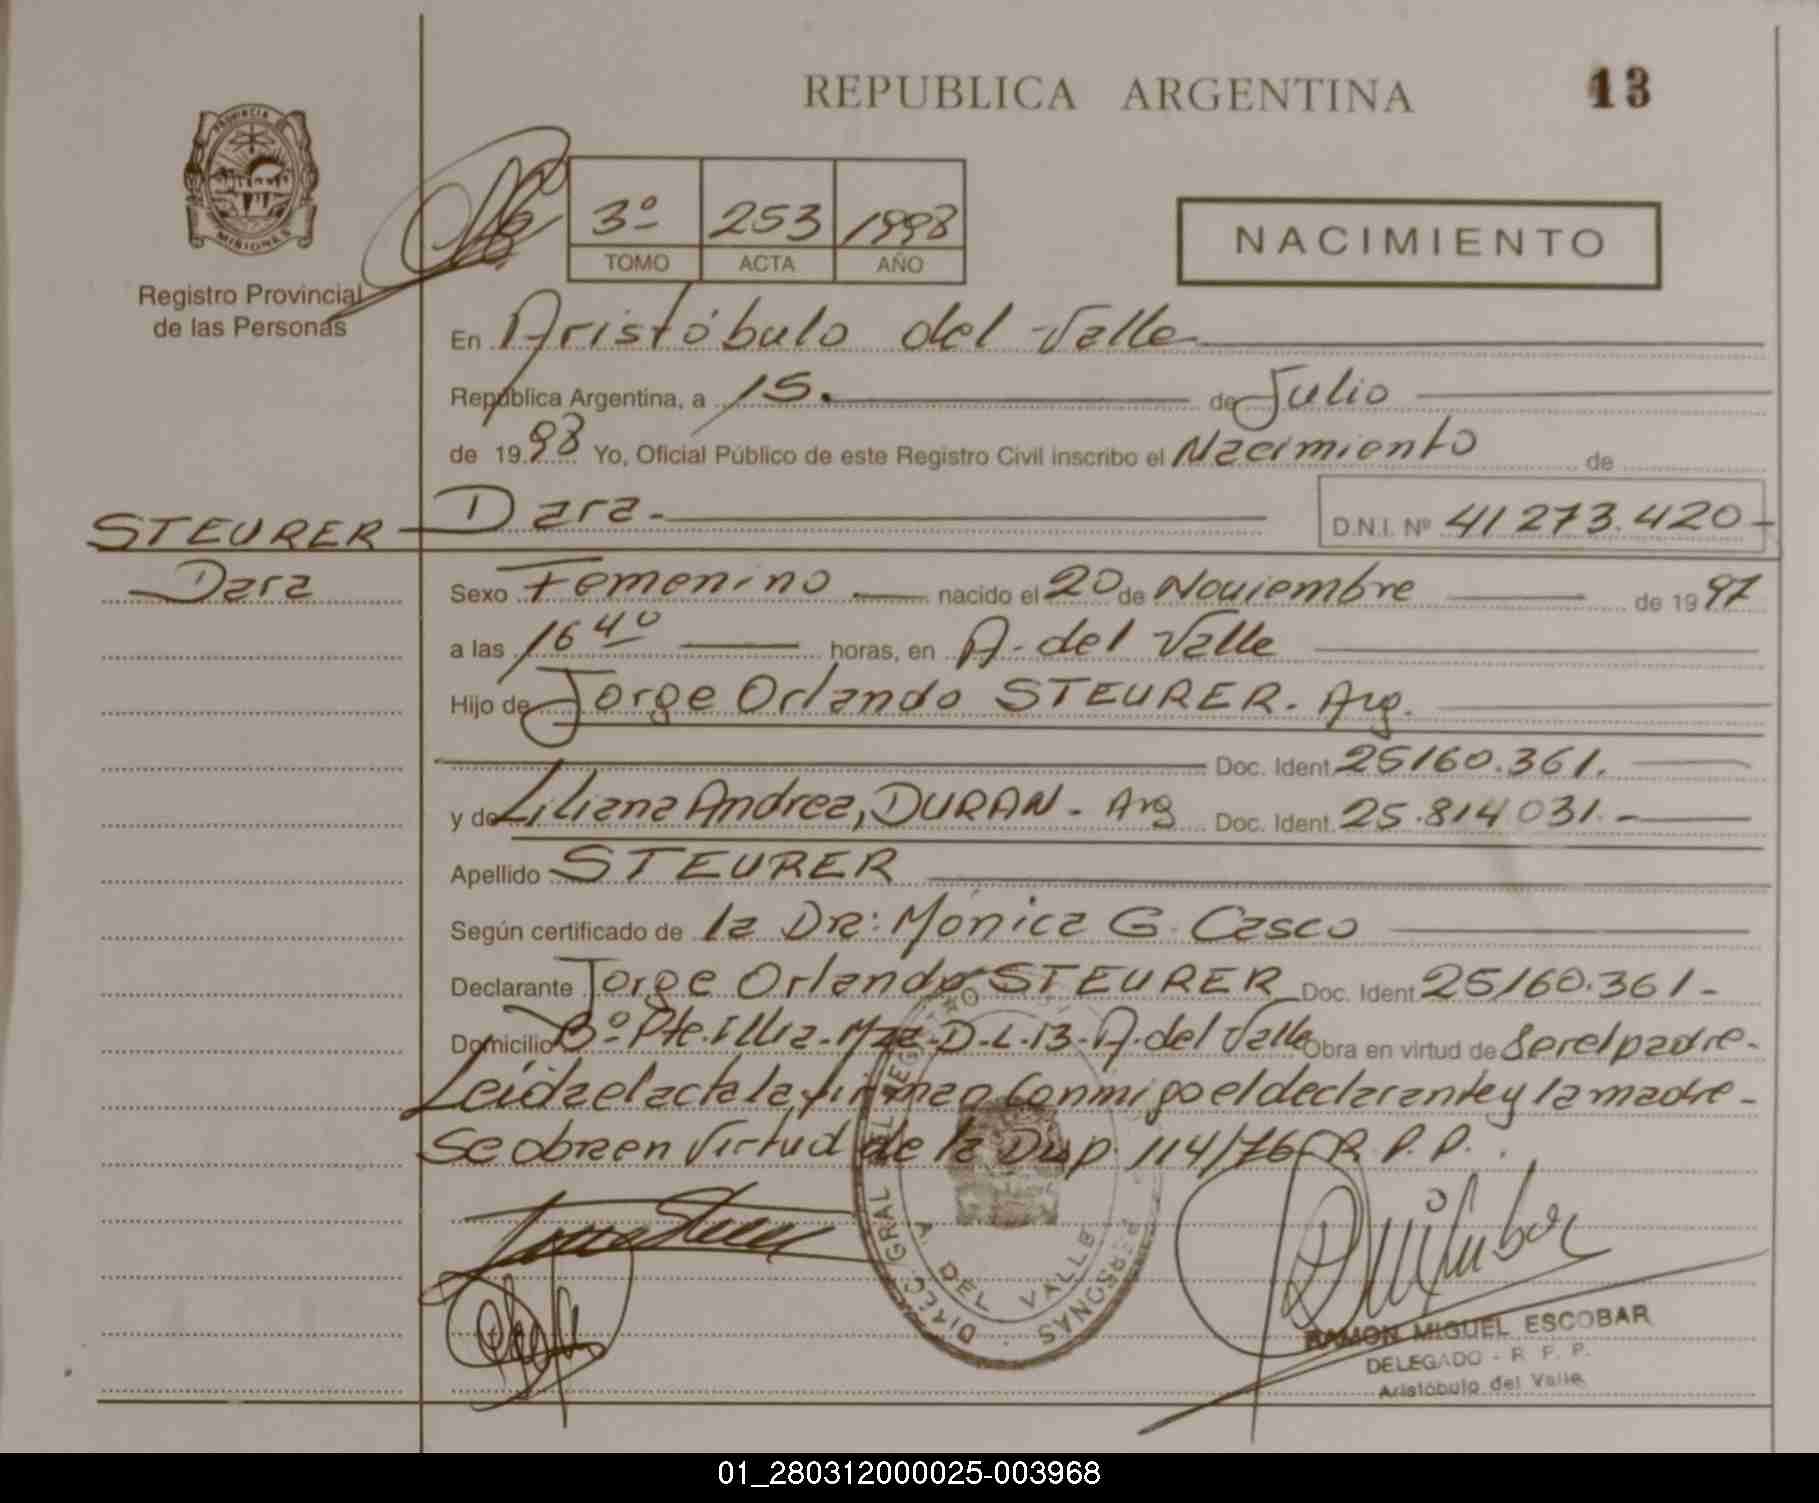 REPUBLICA ARGENTINA
13
PROVINCIA DE
MISIONES
Registro Provincial
de las Personas
3º 253 1998
TOMO ACTA AÑO
NACIMIENTO
En Aristóbulo del Valle
República Argentina, a 15. de Julio
de 1998 Yo, Oficial Público de este Registro Civil inscribo el Nacimiento de
STEURER
Dara
Dara - D.N.I. Nº 41273.420-
Sexo Femenino nacido el 20 de Noviembre de 1997
a las 16 40 horas, en A. del Valle
Hijo de Jorge Orlando STEURER. Arg.
Doc. Ident. 25160.361.
y de Liliana Andrea, DURAN - Arg Doc. Ident. 25.814031.-
Apellido STEURER
Según certificado de la Dra: Mónica G. Casco
Declarante Jorge Orlando STEURER Doc. Ident. 25160.361-
Domicilio Bº Pte. Illia - Mza - D - L - 13 - A. del Valle Obra en virtud de Ser el padre -
Leída el acta la firman Conmigo el declarante y la madre -
Se obra en Virtud de la Disp. 114/76 - R. P. P.
DIREC. GRAL DEL REGISTRO PERSONAS
A DEL VALLE
RAMON MIGUEL ESCOBAR
DELEGADO - R. P. P.
Aristóbulo del Valle
01_280312000025-003968